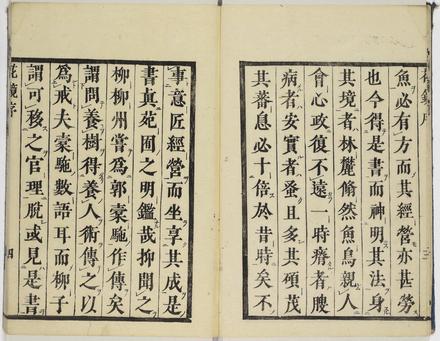 魚必有方而其經營亦甚勞
也今得是書而神明其法身
其境者林麓翛然魚鳥親人
會心政復不遠一時瘠者腴
病者安實者蚤且多其碩茂
其蕃息必十倍於昔時矣不
事意匠經營而坐享其成是
書眞苑囿之明鑑哉抑聞之
柳柳州嘗爲郭橐駞作傳矣
謂問養樹得養人術傳之以
爲戒夫橐駞數語耳而柳子
謂可移之官理脫或見是書
花鏡序
四